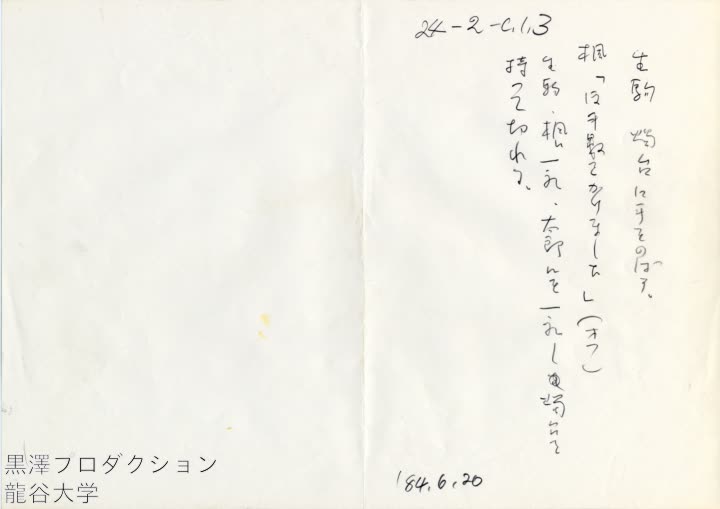 24-2-C,1,3
生駒 燭台に手をのばす。
楓「お手数をかけました」(オフ)
生駒、楓に一礼、太郎にも一礼し燭台を
持って切れる。
'84.6.20
黒澤プロダクション
龍谷大学